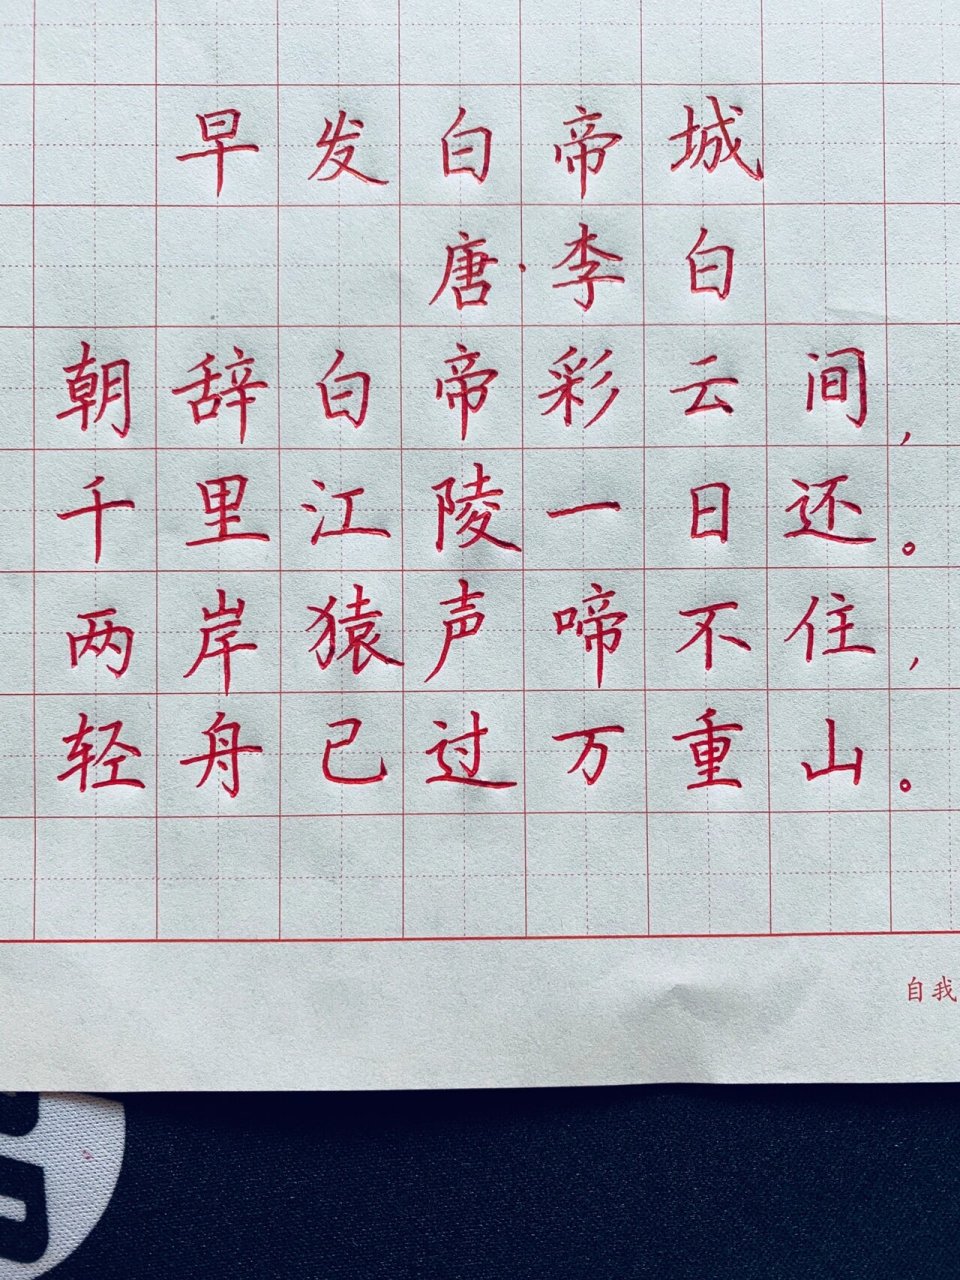 早发白帝城
唐·李白
朝辞白帝彩云间，
千里江陵一日还。
两岸猿声啼不住，
轻舟已过万重山。
自我